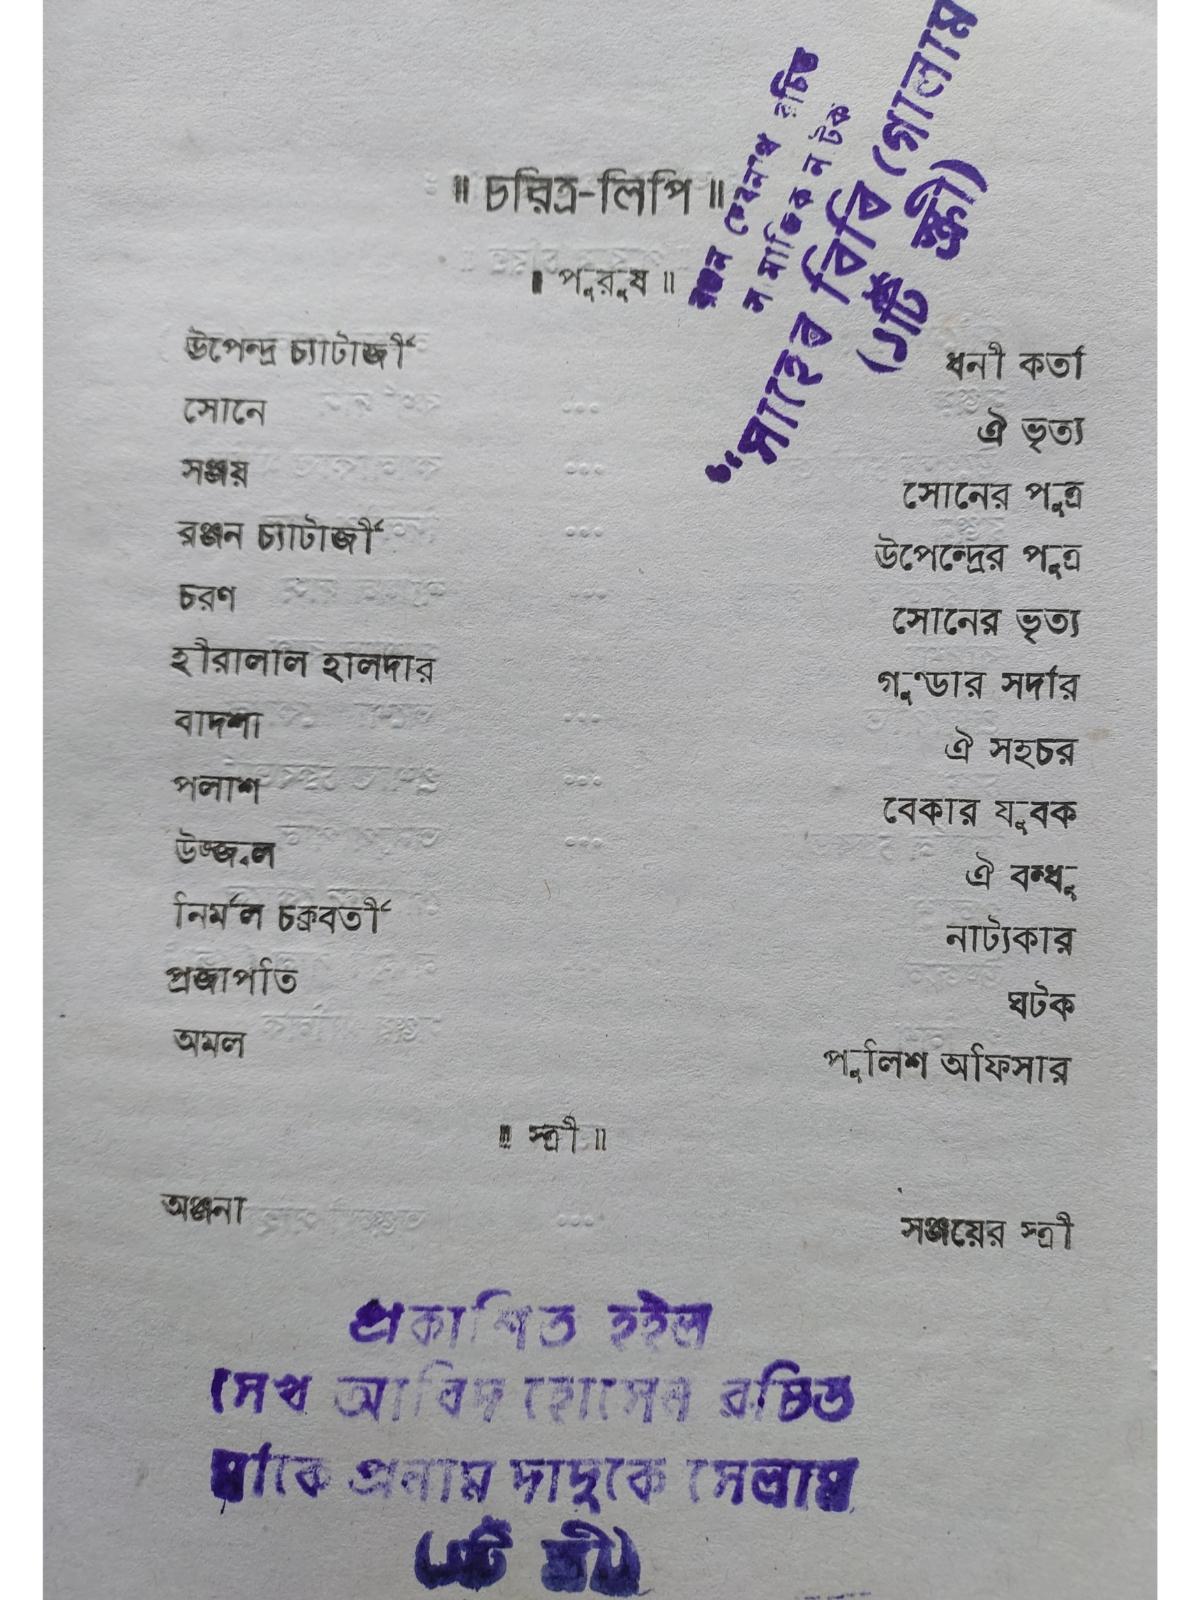 রঞ্জন দেবনাথ রচিত
সামাজিক নাটক
"সাহেব বিবি গোলাম
(১টি স্ত্রী)
॥ চরিত্র-লিপি ॥
॥ পুরুষ ॥
উপেন্দ্র চ্যাটার্জী ধনী কর্তা
সোনে ... ঐ ভৃত্য
সঞ্জয় ... সোনের পুত্র
রঞ্জন চ্যাটার্জী ... উপেন্দ্রের পুত্র
চরণ ... সোনের ভৃত্য
হীরালাল হালদার গুণ্ডার সর্দার
বাদশা ... ঐ সহচর
পলাশ ... বেকার যুবক
উজ্জ্বল ... ঐ বন্ধু
নির্মল চক্রবর্তী নাট্যকার
প্রজাপতি ঘটক
অমল পুলিশ অফিসার
॥ স্ত্রী ॥
অঞ্জনা ... সঞ্জয়ের স্ত্রী
প্রকাশিত হইল
সেখ আবিদ হোসেন রচিত
মাকে প্রনাম দাদুকে সেলাম
(১টি স্ত্রী)